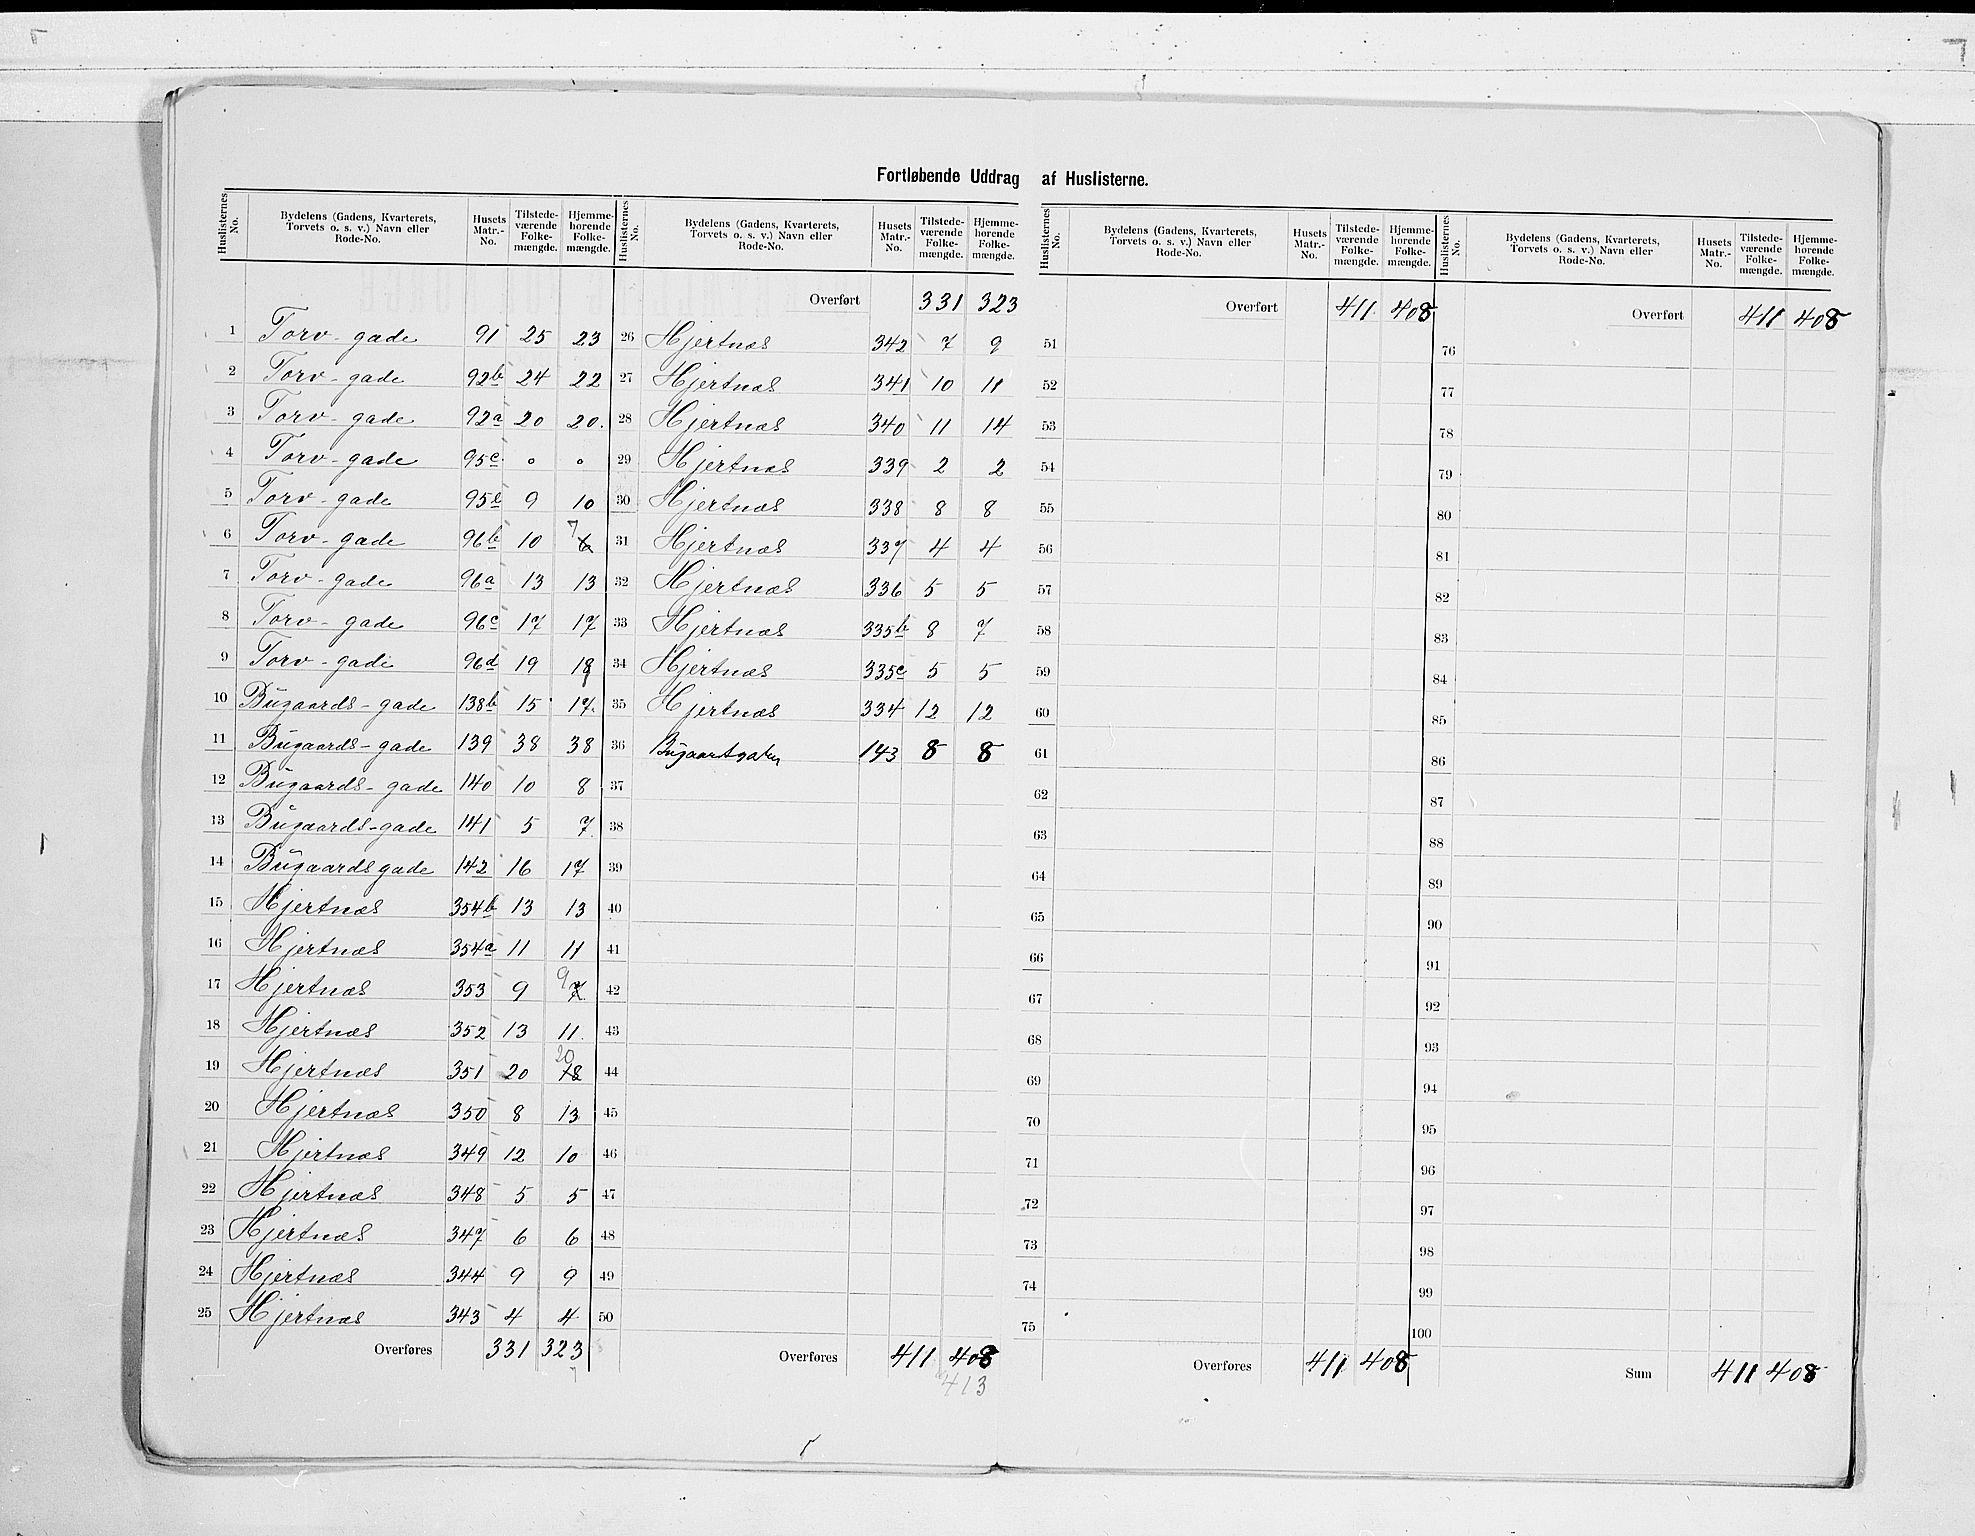 Fortløbende Uddrag af Huslisterne.
Huslisternes No. | Bydelens (Gadens, Kvarterets, Torvets o. s. v.) Navn eller Rode-No. | Husets Matr.-No. | Tilstede-værende Folke-mængde. | Hjemme-hørende Folke-mængde.
1 Torv-gade 91 25 23
2 Torv-gade 92b 24 22
3 Torv-gade 92a 20 20.
4 Torv-gade 95c 0 0
5 Torv-gade 95b 9 10
6 Torv-gade 96b 10 7 6
7 Torv-gade 96a 13 13
8 Torv-gade 96c 17 17
9 Torv-gade 96d 19 18
10 Bugaards-gade 138b 15 17.
11 Bugaards-gade 139 38 38
12 Bugaards-gade 140 10 8
13 Bugaards-gade 141 5 7.
14 Bugaardsgade 142 16 17
15 Hjertnæs 354b 13 13
16 Hjertnæs 354a 11 11
17 Hjertnæs 353 9 9 7
18 Hjertnæs 352 13 11.
19 Hjertnæs 351 20 20 18
20 Hjertnæs 350 8 13
21 Hjertnæs 349 12 10
22 Hjertnæs 348 5 5
23 Hjertnæs 347 6 6
24 Hjertnæs 344 9 9
25 Hjertnæs 343 4 4
Overføres 331 323
Huslisternes No. | Bydelens (Gadens, Kvarterets, Torvets o. s. v.) Navn eller Rode-No. | Husets Matr.-No. | Tilstede-værende Folke-mængde. | Hjemme-hørende Folke-mængde.
Overført 331 323
26 Hjertnæs 342 7 9
27 Hjertnæs 341 10 11
28 Hjertnæs 340 11 14
29 Hjertnæs 339 2 2
30 Hjertnæs 338 8 8
31 Hjertnæs 337 4 4
32 Hjertnæs 336 5 5
33 Hjertnæs 335b 8 7
34 Hjertnæs 335c 5 5
35 Hjertnæs 334 12 12
36 Bugaartgaten 143 8 8
37
38
39
40
41
42
43
44
45
46
47
48
49
50
Overføres 411 408
413
Huslisternes No. | Bydelens (Gadens, Kvarterets, Torvets o. s. v.) Navn eller Rode-No. | Husets Matr.-No. | Tilstede-værende Folke-mængde. | Hjemme-hørende Folke-mængde.
Overført 411 408
51
52
53
54
55
56
57
58
59
60
61
62
63
64
65
66
67
68
69
70
71
72
73
74
75
Overføres 411 408
Huslisternes No. | Bydelens (Gadens, Kvarterets, Torvets o. s. v.) Navn eller Rode-No. | Husets Matr.-No. | Tilstede-værende Folke-mængde. | Hjemme-hørende Folke-mængde.
Overført 411 408
76
77
78
79
80
81
82
83
84
85
86
87
88
89
90
91
92
93
94
95
96
97
98
99
100
Sum 411 408